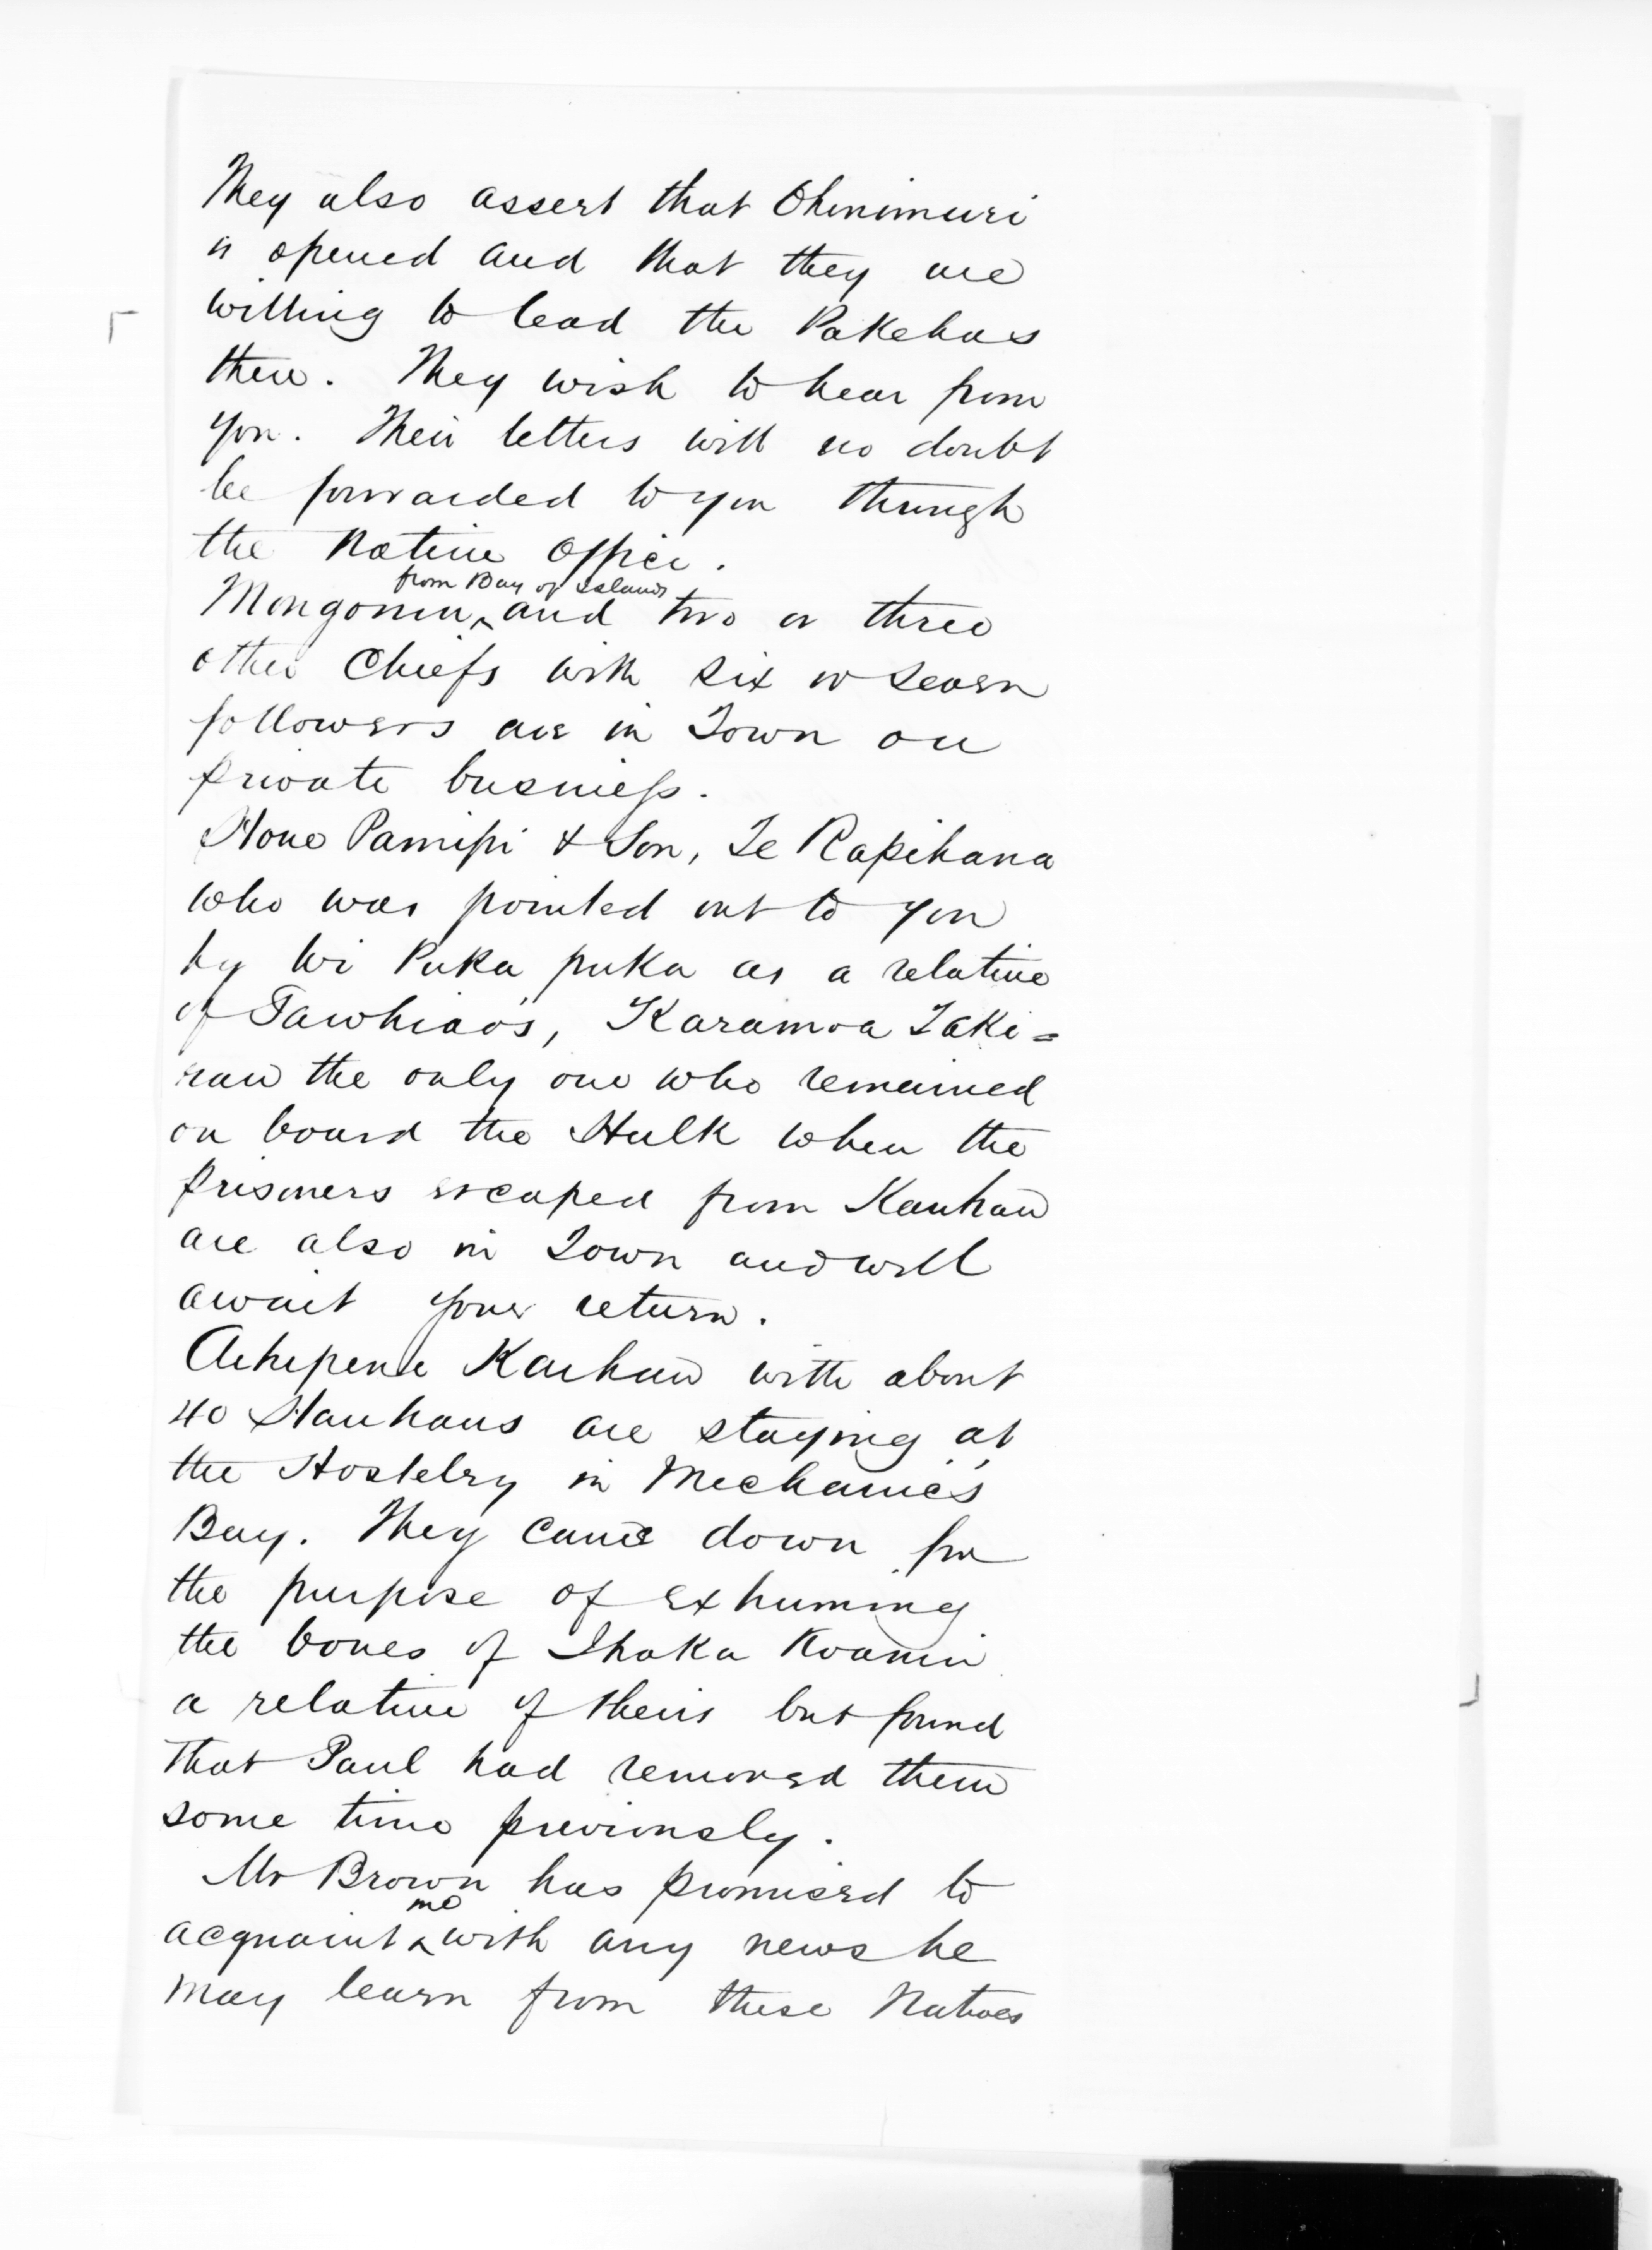 They also assert that Ohinimuri
is opened and that they are
willing to lead the Pakehas
there. They wish to hear from
you. Their letters will no doubt
be forwarded to you through
the Native Office.
from Bay of Islands
Mongonui ^ and two or three
other Chiefs with six or seven
followers are in Town on
private business.
Hone Pamipi & Son, Te Rapihana
who was pointed out to you
by Wi Puka puka as a relative
of Tawhiao's, Karamoa Taki=
rau the only one who remained
on board the Hulk when the
prisoners escaped from Kauhau
are also in Town and will
await your return.
Aihipene Kaihau with about
40 Hauhaus are staying at
the Hostelry in Mechanic's
Bay. They came down for
the purpose of exhuming
the bones of Ihaka
a relative of theirs but found
that Paul had removed them
some time previously.
Mr Brown has promised to
me
acquaint ^ with any news he
may learn from these Natives